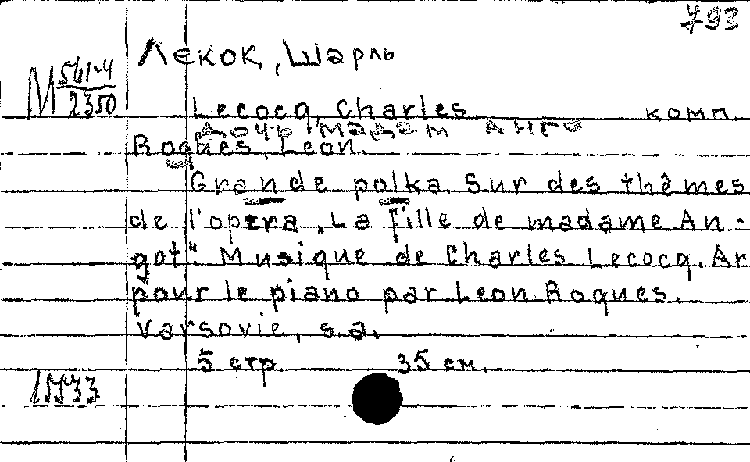 793
Лекок, Шарль
М 561-4
2350
Lecocq, Charles комп.
Дочь мадам Анго
Roques, Leon.
Grande polka sur des thêmes
de l'opera „La fille de madame An-
got". Musique de Charles Lecocq. Ar
pour le piano par Leon Roques.
Varsovie, s.a.
5 стр. 35 см.